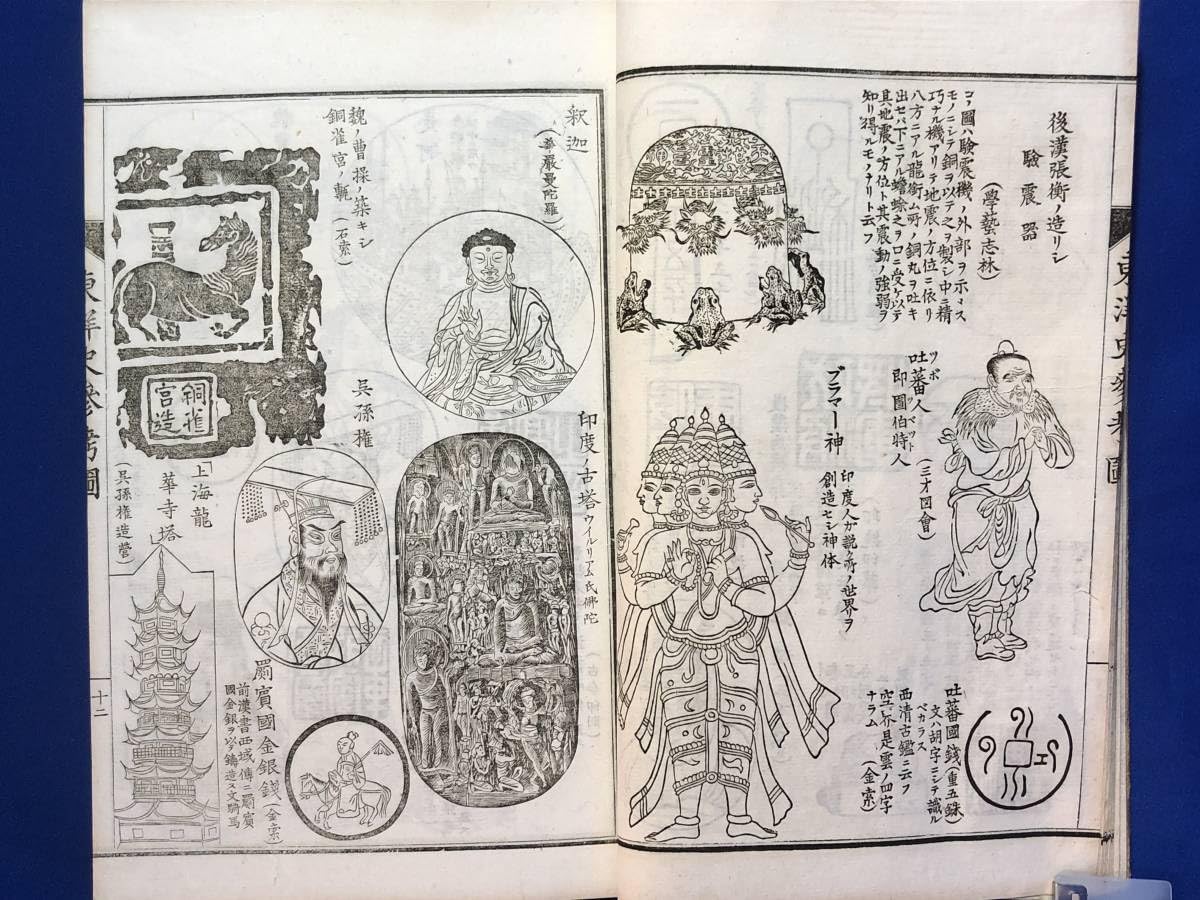 後漢張衡ノ造リシ
驗震器
(學藝志林)
コノ圖ハ驗震機ノ外部ヲ示ース
モノニシテ銅ヲ以テ之ヲ製シ中ニ精
巧ナル機アリテ地震ノ方位ニ依リ
八方ニアル龍銜ム所ノ銅丸ヲ吐キ
出セバ下ニアル蟾蜍之ヲ口ニ受ケ以テ
其地震ノ方位ト其震動ノ強弱ヲ
知リ得ルモノナリト云フ
ツボ
吐蕃人
即圖伯特人
(三才図會)
ブラマー神
印度人ガ説ク所ノ世界ヲ
創造セシ神体
吐蕃國錢(重五銖)
文ハ胡字ニシテ識ル
ベカラス
西清古鑑ニ云フ
空斧是雲ノ四字
ナラム
(金索)
釈迦
(華嚴曼陀羅)
魏ノ曹操ノ築キシ
銅雀宮ノ甎
(石索)
銅雀
宮造
印度ノ古塔
ウイルリアム氏佛陀
呉孫權
上海龍
華寺塔
(呉孫權造營)
罽賓國金銀錢(金索)
前漢書西域傳ニ罽賓
國金銀ヲ以テ鋳造ス文騎馬
東洋史參考圖
十二
東洋史參考圖